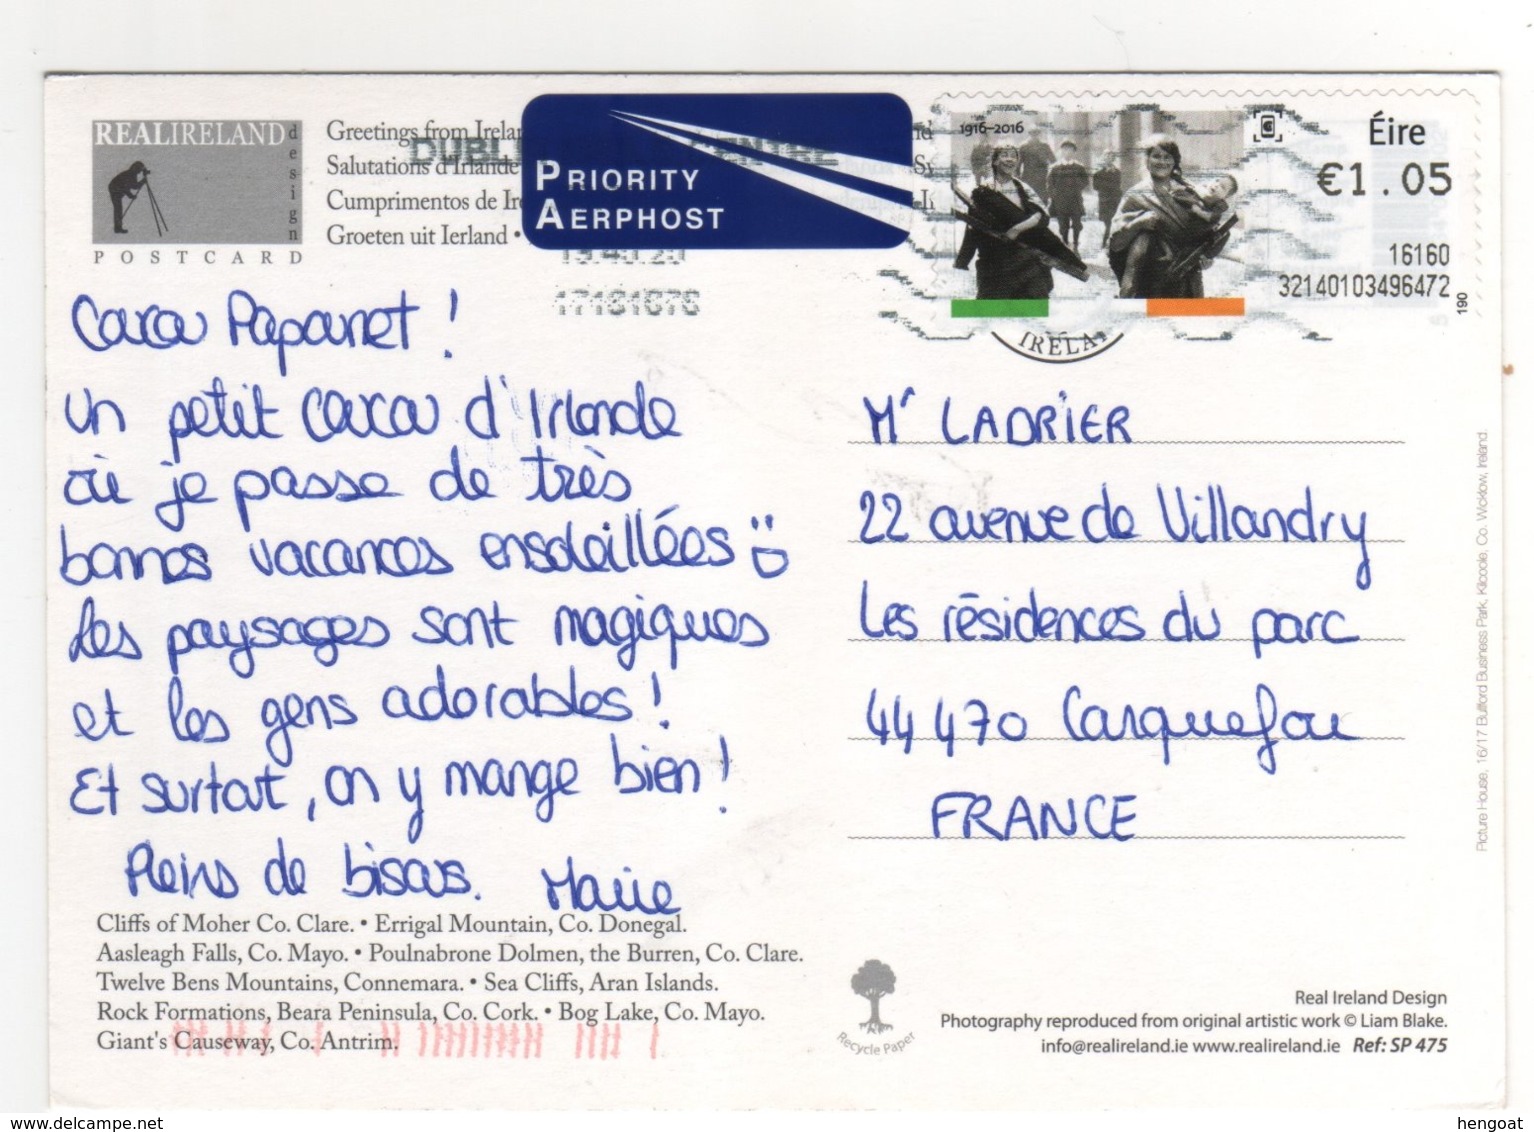 REALIRELAND
design
POSTCARD
Greetings from Irelan
Salutations d'Irlande
Cumprimentos de Ire
Groeten uit Ierland •
PRIORITY
AERPHOST
CENTRE
17181676
1916–2016
Éire
€1.05
16160
32140103496472
190
IRELA
Coucou Papounet !
Un petit coucou d'Irlande
où je passe de très
bonnes vacances ensoleillées
Les paysages sont magiques
et les gens adorables !
Et surtout, on y mange bien !
Pleins de bisous. Marie
Mr LADRIER
22 avenue de Villandry
Les résidences du parc
44 470 Carquefou
FRANCE
Cliffs of Moher Co. Clare. • Errigal Mountain, Co. Donegal.
Aasleagh Falls, Co. Mayo. • Poulnabrone Dolmen, the Burren, Co. Clare.
Twelve Bens Mountains, Connemara. • Sea Cliffs, Aran Islands.
Rock Formations, Beara Peninsula, Co. Cork. • Bog Lake, Co. Mayo.
Giant's Causeway, Co. Antrim.
Recycle Paper
Real Ireland Design
Photography reproduced from original artistic work © Liam Blake.
info@realireland.ie www.realireland.ie Ref: SP 475
Picture House, 16/17 Bulford Business Park, Kilcoole, Co. Wicklow, Ireland.
delcampe.net
hengoat